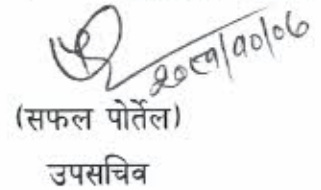 २०८१/१०/०६
(सफल पोर्तेल)
उपसचिव